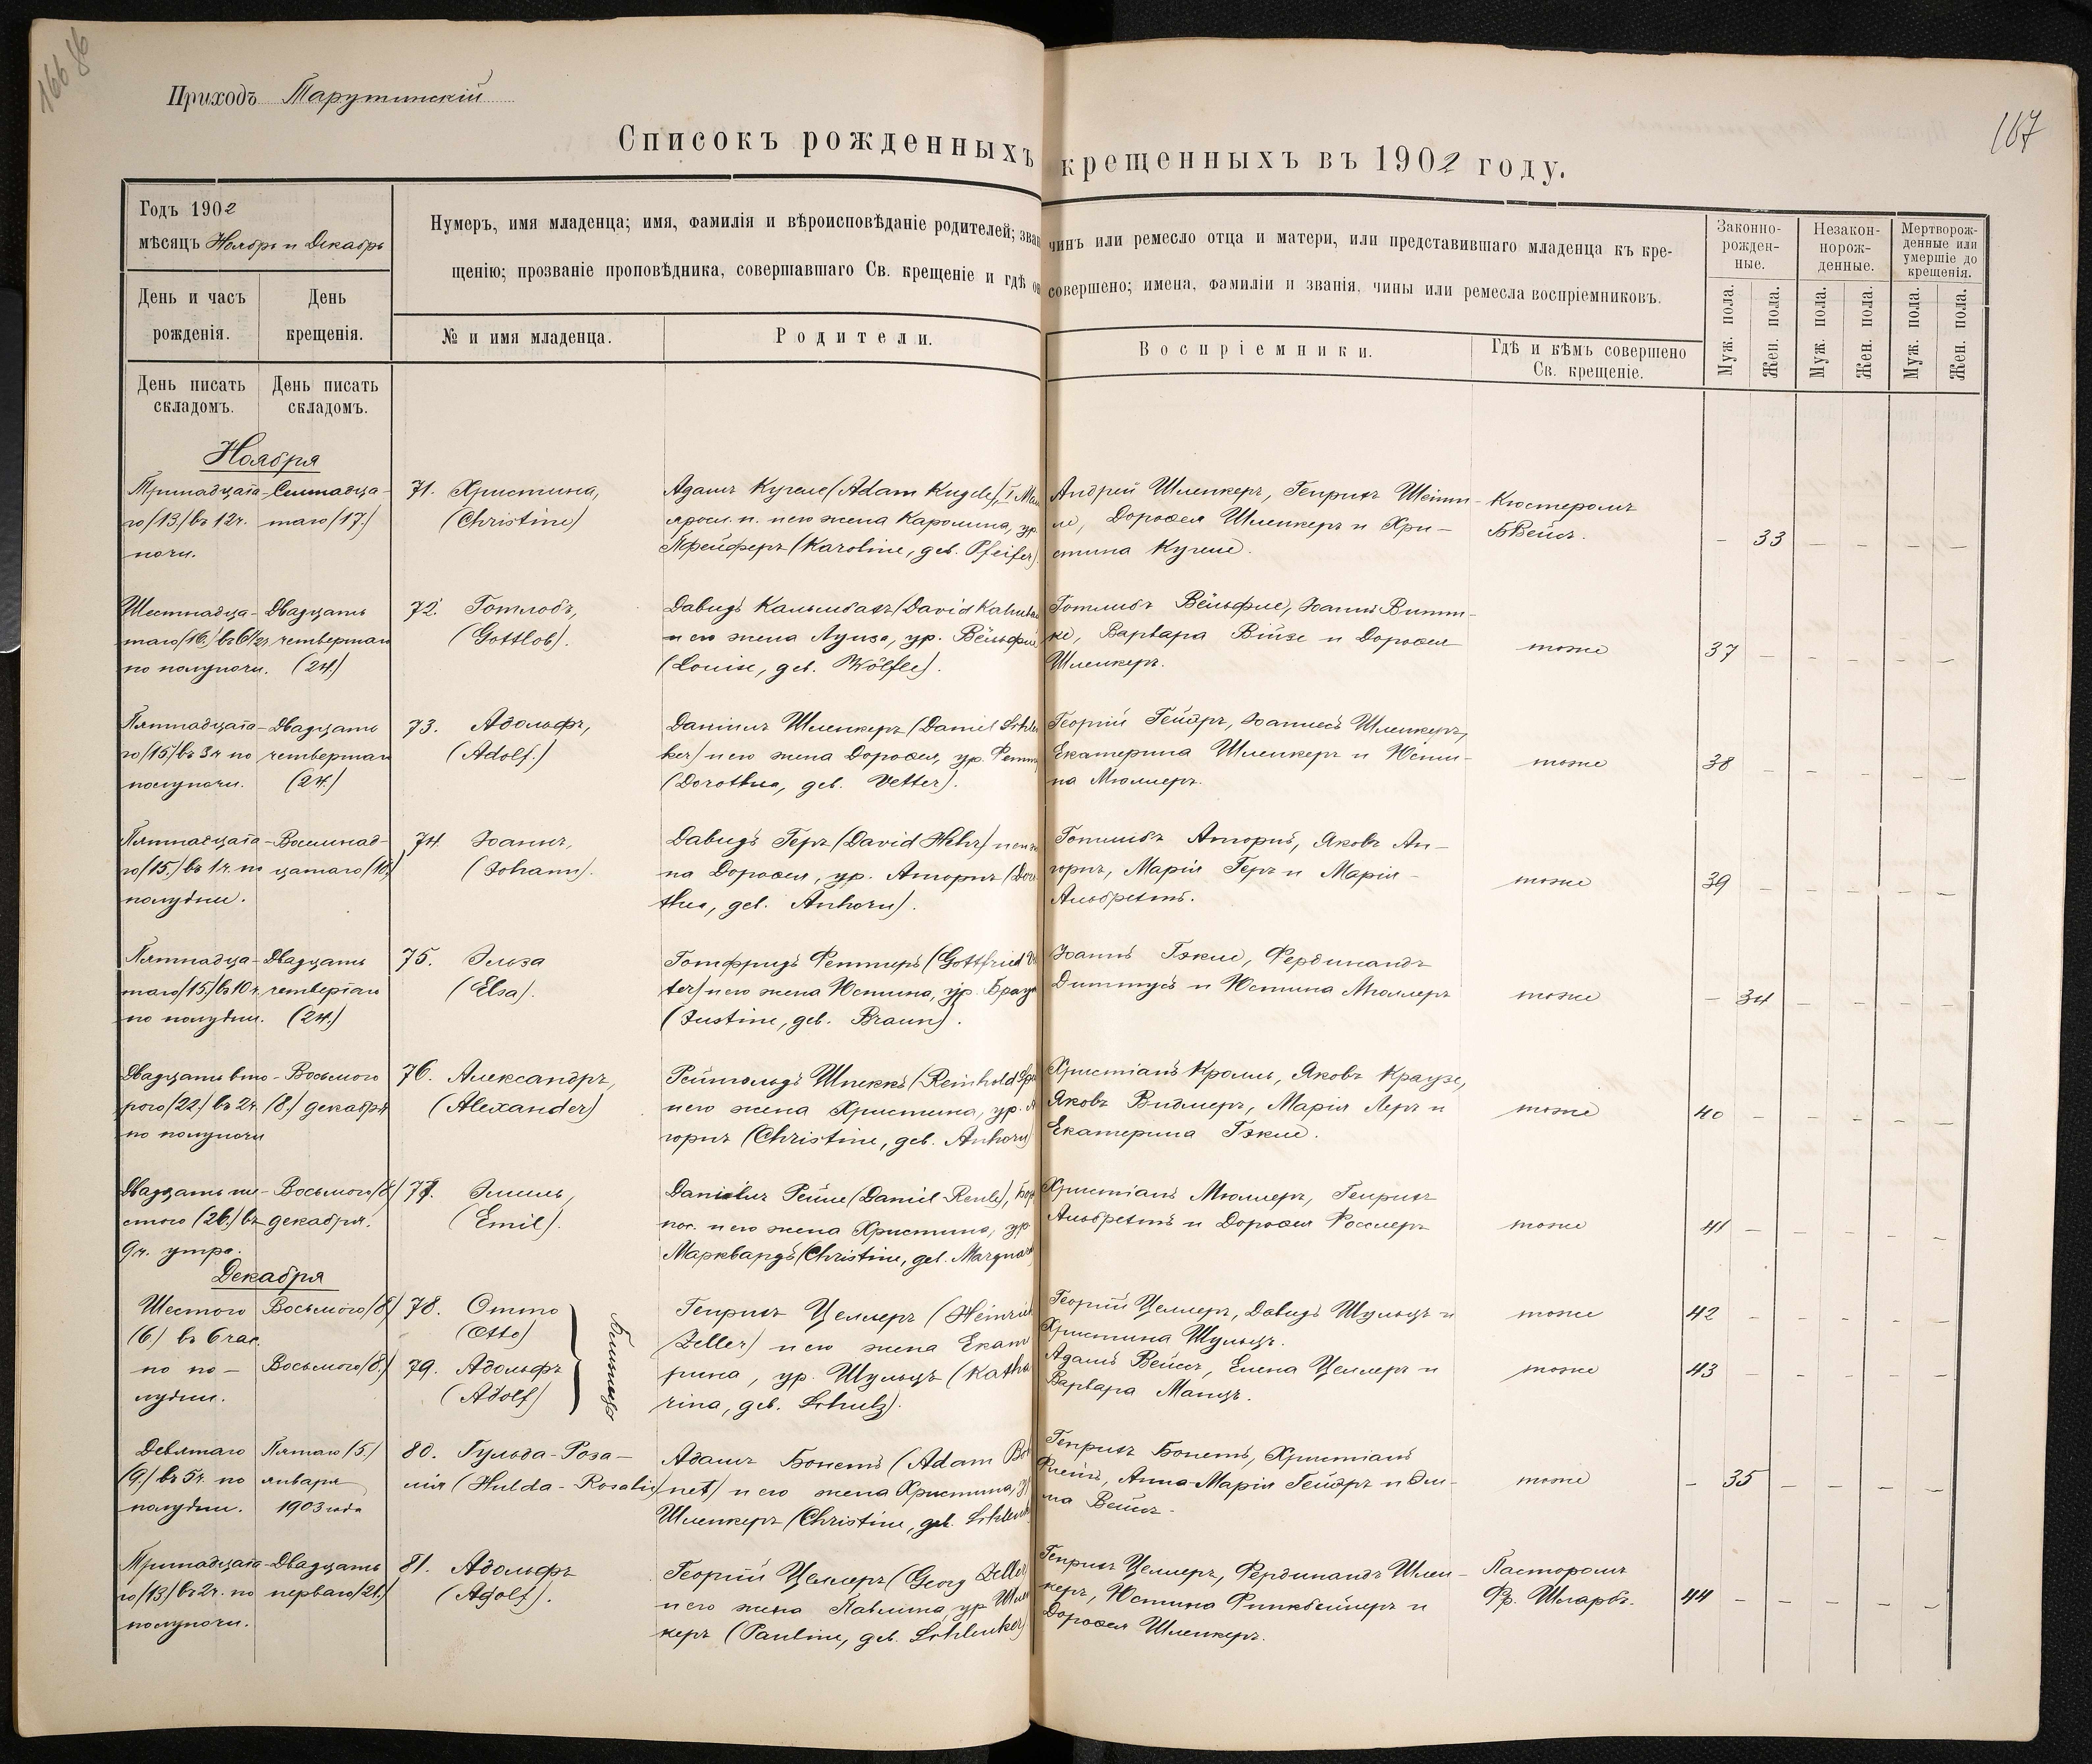 166 об
167
Приходъ Тарутинскій
Списокъ рожденныхъ крещенныхъ въ 1902 году.
Годъ 1902
мѣсяцъ Ноябрь и Декабрь
День и часъ рожденія.
День крещенія.
День писать складомъ.
День писать складомъ.
Нумеръ, имя младенца; имя, фамилія и вѣроисповѣданіе родителей; зван чинъ или ремесло отца и матери, или представившаго младенца къ кре-
щенію; прозваніе проповѣдника, совершавшаго Св. крещеніе и гдѣ он совершено; имена, фамиліи и званія, чины или ремесла воспріемниковъ.
№ и имя младенца.
Родители.
Воспріемники.
Гдѣ и кѣмъ совершено Св. крещеніе.
Законно-рожден-ные.
Незакон-норож-денные.
Мертворож-денные или умершіе до крещенія.
Муж. пола.
Жен. пола.
Муж. пола.
Жен. пола.
Муж. пола.
Жен. пола.
Ноября
Тринадцата-
го (13.) въ 12ч.
ночи.
Семнадца-
таго (17.)
71. Христина,
(Christine)
Адамъ Кугеле (Adam Kugele),
и его жена Каролина, ур.
Пфейферъ (Karoline, geb. Pfeifer)
Андрей Шленкеръ, Генрихъ
Доровея Шленкеръ и Хри-
стина Кугеле.
Кюстеромъ
Б Вейсъ.
- 33 - - - -
Шестнадца-
таго (16.)
по полуночи.
Двадцать
четвертаго
(24.)
72. Готлобъ,
(Gottlob).
Давидъ Кальмбахъ (David Kalmba
и его жена Луиза, ур. Вёльфле
(Louise, geb. Wölfle).
Готлибъ Вёльфле, Іоаннъ Витт-
ке, Варвара Війзе и Доровея
Шленкеръ.
тоже
37 - - - - -
Пятнадцата-
го (15.) въ 3ч по
полуночи.
Двадцать
четвертаго
(24.)
73. Адольфъ,
(Adolf.)
Даніилъ Шленкеръ (Daniel Schlen
ker) и его жена Доровея, ур. Фетте
(Dorothea, geb. Vetter).
Георгій Гейеръ, Іоаннесъ Шленкеръ,
Екатерина Шленкеръ и Юсти-
на Мюллеръ.
тоже
38 - - - - -
Пятнадцата-
го (15.) въ 1ч. по
полудни.
Восемнад-
цатаго (18.)
74. Іоаннъ,
(Johann).
Давидъ Геръ (David Hehr) и его же
на Доровея, ур. Ангорнъ (Doro
thea, geb. Anhorn).
Готлибъ Ангорнъ, Яковъ Ан-
горнъ, Марія Геръ и Марія
Альбрехтъ.
тоже
39 - - - - -
Пятнадца-
таго (15.) въ 10ч.
по полудни.
Двадцать
четвертаго
(24.)
75. Эльза
(Elsa).
Готфридъ Феттеръ (Gottfried Ve
ter) и его жена Юстина, ур. Браун
(Justine, geb. Braun).
Іоаннъ Гэкле, Фердинандъ
Диттусъ и Юстина Мюллеръ
тоже
- 34 - - - -
Двадцать вто-
рого (22.) въ 2ч.
по полуночи
Восьмого
(8.) декабря
76. Александръ,
(Alexander)
Рейнгольдъ Шпеккъ (Reinhold Spe
и его жена Христина, ур. Ан
горнъ (Christine, geb. Anhorn)
Христіанъ Кроль, Яковъ Краузе,
Яковъ Видмеръ, Марія Леръ и
Екатерина Гэкле.
тоже
40 - - - - -
Двадцать ше-
стого (26.) въ
9ч. утра.
Восьмого (8.)
декабря.
77. Эмиль,
(Emil).
Даніилъ Рейле (Daniel Reule),
пос. и его жена Христина, ур
Марквардъ (Christine, geb. Marquar
Христіанъ Мюллеръ, Генрихъ
Альбрехтъ и Доровея Росслеръ
тоже
41 - - - - -
Декабря
Шестого
(6) въ 6 час.
по по-
лудни.
Восьмого (8.)
Восьмого (8.)
78. Отто
(Otto)
79. Адольфъ
(Adolf)
Близнецы
Генрихъ Целлеръ (Heinrich
Zeller) и его жена Екате
рина, ур. Шульцъ (Katha
rina, geb. Schulz).
Георгій Целлеръ, Давидъ Шульцъ и
Христина Шульцъ.
Адамъ Вейсъ, Елена Целлеръ и
Варвара Манцъ.
тоже
тоже
42 - - - - -
43 - - - - -
Девятаго
(9.) въ 5ч. по
полудни.
Пятаго (5.)
января
1903 года
80. Гульда-Роза-
лія (Hulda-Rosalie)
Адамъ Бонетъ (Adam Bo
net) и его жена Христина, у
Шленкеръ (Christine, geb. Schlenk
Генрихъ Бонетъ, Христіанъ
Анна-Марія Гейеръ и Эм-
ма Вейсъ.
тоже
- 35 - - - -
Тринадцата-
го (13.) въ 2ч. по
полуночи.
Двадцать
перваго (21.)
81. Адольфъ
(Adolf).
Георгій Целлеръ (Georg Zeller
и его жена Павлина, ур Шлен
керъ (Pauline, geb. Schlenker)
Генрихъ Целлеръ, Фердинандъ Шлен-
керъ, Юстина Финкбейнеръ и
Доровея Шленкеръ.
Пасторомъ
Фр. Шларбъ.
44 - - - - -